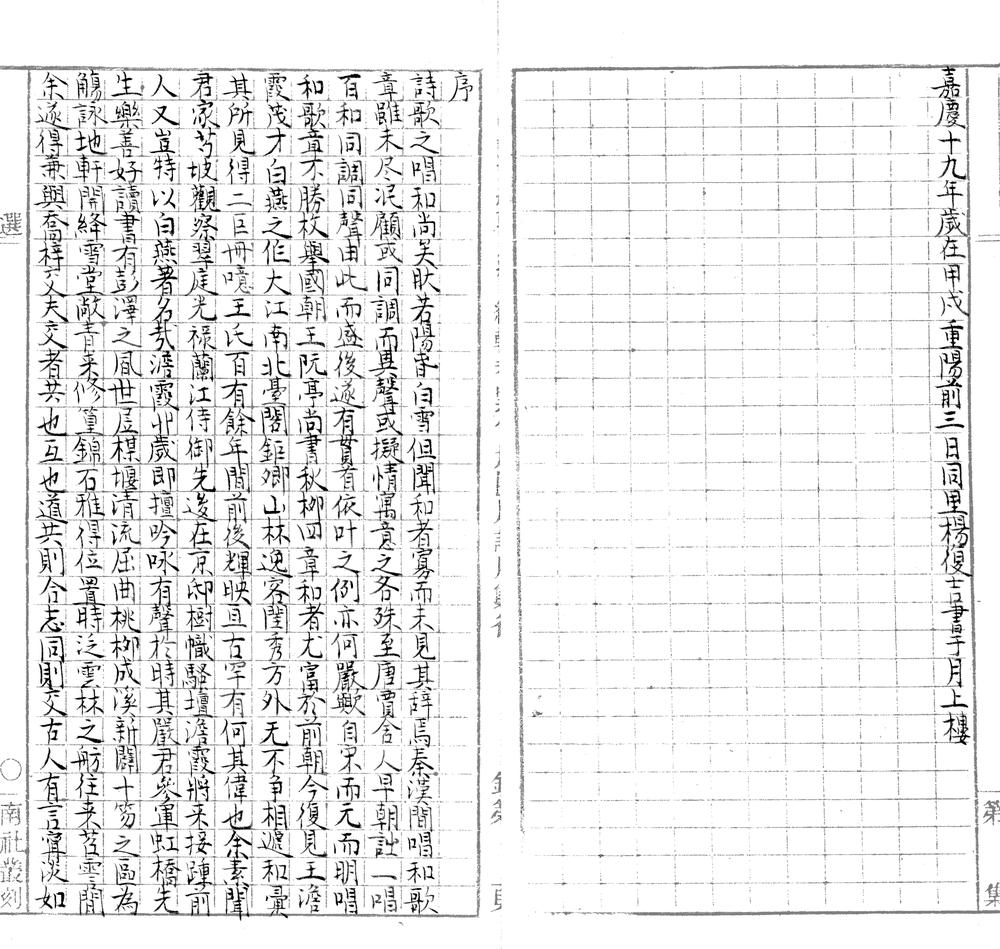 嘉慶十九年歲在甲戌重陽前三日同里楊復吉書于月上樓
第
集
序
詩歌之唱和尚矣肰若陽春白雪但聞和者寡而未見其辭焉秦漢間唱和歌
章雖未尽泯顧或同調而異聲或擬情寓意之各殊至唐賈舍人早朝詩一唱
百和同調同聲由此而盛後遂有賡者依叶之例亦何嚴歟自宋而元而明唱
和歌章不勝枚舉國朝王阮亭尚書秋柳四章和者尤富於前朝今復見王澹
霞茂才白燕之作大江南北臺閣鉅卿山林逸客閨秀方外无不争相遞和彙
其所見得二巨冊噫王氏百有餘年間前後輝映亘古罕有何其偉也余素聞
君家芍坡觀察翠庭光祿蘭江侍御先後在京邸樹幟騷壇澹霞將来接踵前
人又豈特以白燕著名㦲澹霞丱歲即擅吟咏有聲於時其嚴君參軍虹橋先
生樂善好讀書有彭澤之風世居楳堰清流屈曲桃柳成溪新闢十笏之區為
觴詠地軒開絳雪堂敞青来修篁錦石雅得位置時泛雲林之舫往来苕霅間
余遂得兼與喬梓交夫交者共也互也道共則合志同則交古人有言寧淡如
選
〇
南社叢刻